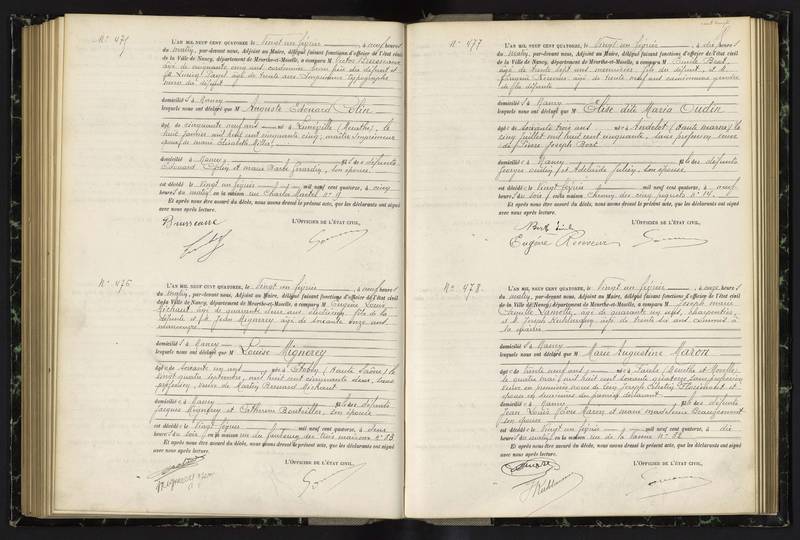 N° 475
L'AN MIL NEUF CENT QUATORZE, le vingt un février, à neuf heures
du matin, par-devant nous, Adjoint au Maire, délégué faisant fonctions d'officier de l'état civil
de la Ville de Nancy, département de Meurthe-et-Moselle, a comparu M Victor
âgé de cinquante cinq ans, cordonnier, beau père du défunt et
âgé de trente ans Imprimeur typographe
du défunt
domiciliés à Nancy
lesquels nous ont déclaré que M Auguste Edouard Colin
âgé de cinquante neuf ans né à Lunéville (Meurthe), le
huit janvier mil huit cent cinquante cinq, maître Imprimeur
époux de Marie Elisabeth Miller
domicilié à Nancy fils des défunts
Edouard Colin et Marie Barbe Girardin, son épouse.
est décédé le vingt février mil neuf cent quatorze, à cinq
heures du matin en sa maison rue Charles Martel n° 9
Et après nous être assuré du décès, nous avons dressé le présent acte, que les déclarants ont signé
avec nous après lecture.
L'OFFICIER DE L'ÉTAT CIVIL,
N° 476
L'AN MIL NEUF CENT QUATORZE, le vingt un février, à neuf heures
du matin, par-devant nous, Adjoint au Maire, délégué faisant fonctions d'officier de l'état civil
de la Ville de Nancy, département de Meurthe-et-Moselle, a comparu M Eugène Louis
Michaut, âgé de quarante deux ans, fils de la
défunte et M Jean Mignerey âgé de soixante onze ans
domiciliés à Nancy
lesquels nous ont déclaré que M Louise Mignerey
âgée de soixante un ans née à (Haute Saône) le
vingt quatre septembre mil huit cent cinquante deux, sans
profession, veuve de Martin Bernard Michaut
domiciliée à Nancy fille des défunts
Jacques Mignerey et Catherine Bouteiller son épouse
est décédée le vingt février mil neuf cent quatorze, à deux
heures du soir en sa maison rue du faubourg des trois maisons n° 83
Et après nous être assuré du décès, nous avons dressé le présent acte, que les déclarants ont signé
avec nous après lecture.
L'OFFICIER DE L'ÉTAT CIVIL,
N° 477
L'AN MIL NEUF CENT QUATORZE, le vingt un février, à dix heures
du matin, par-devant nous, Adjoint au Maire, délégué faisant fonctions d'officier de l'état civil
de la Ville de Nancy, département de Meurthe-et-Moselle, a comparu M Emile Bert,
âgé de trente sept ans, menuisier, fils de la défunte, et M
Eugène Receveur, âgé de trente neuf ans gendre
de la défunte
domiciliés à Nancy
lesquels nous ont déclaré que M Elise dite Maria Oudin
âgée de soixante trois ans née à Andelot (Haute Marne) le
cinq juillet mil huit cent cinquante, sans profession, veuve
de Pierre Joseph Bert
domiciliée à Nancy fille des défunts
Georges Oudin et Adélaïde Julien, son épouse
est décédée le vingt février mil neuf cent quatorze, à neuf
heures du soir en sa maison Chemin des cinq piquets n° 14
Et après nous être assuré du décès, nous avons dressé le présent acte, que les déclarants ont signé
avec nous après lecture.
L'OFFICIER DE L'ÉTAT CIVIL,
Bert Emile
Eugène Receveur
N° 478
L'AN MIL NEUF CENT QUATORZE, le vingt un février, à onze heures
du matin, par-devant nous, Adjoint au Maire, délégué faisant fonctions d'officier de l'état civil
de la Ville de Nancy, département de Meurthe-et-Moselle, a comparu M Joseph Marie
Camille âgé de quarante un ans, charpentier,
et M Joseph âgé de trente six ans commis à
la mairie
domiciliés à Nancy
lesquels nous ont déclaré que M Marie Augustine Maron
âgée de trente neuf ans née à (Meurthe et Moselle)
le quatre mai mil huit cent soixante quatorze sans profession
veuve en premières noces de Léon Joseph et
épouse en deuxièmes du premier déclarant
domiciliée à Nancy fille des défunts
Jean Louis Maron et Marie son épouse
est décédée le vingt un février mil neuf cent quatorze, à dix
heures du matin en sa maison rue de n° 52
Et après nous être assuré du décès, nous avons dressé le présent acte, que les déclarants ont signé
avec nous après lecture.
L'OFFICIER DE L'ÉTAT CIVIL,